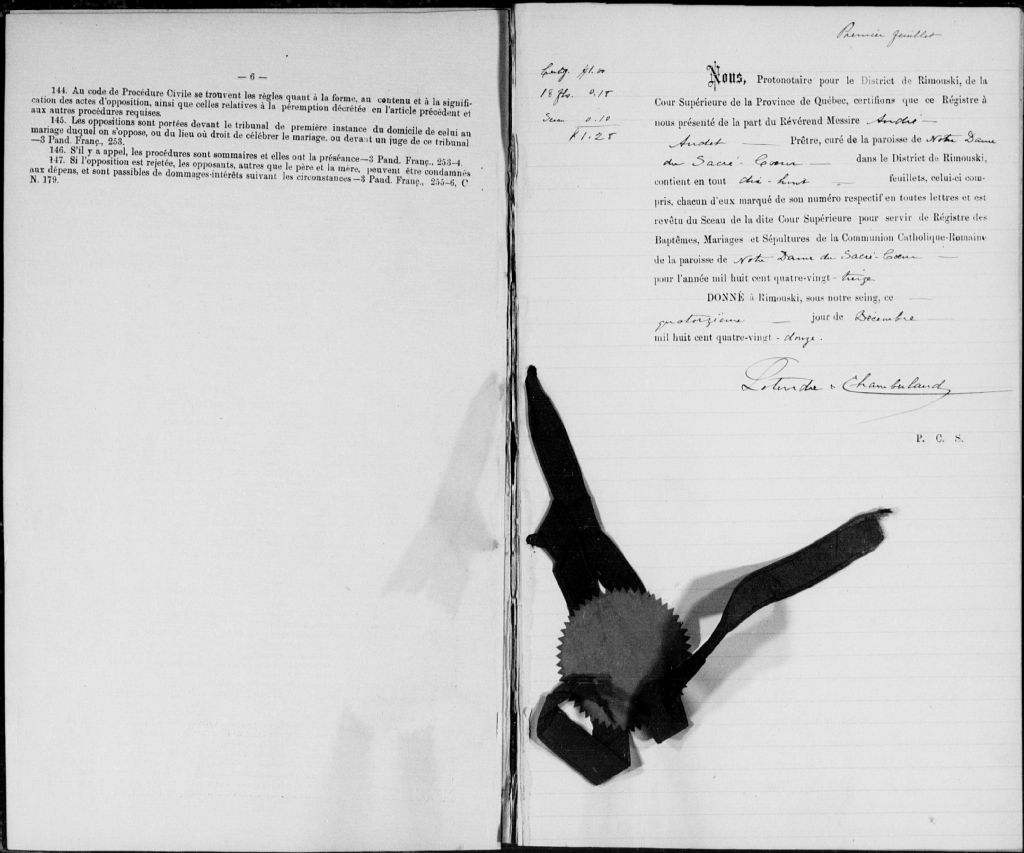 — 6 —
144. Au code de Procédure Civile se trouvent les règles quant à la forme, au contenu et à la signifi-
cation des actes d'opposition, ainsi que celles relatives à la péremption décrétée en l'article précédent et
aux autres procédures requises.
145. Les oppositions sont portées devant le tribunal de première instance du domicile de celui au
mariage duquel on s'oppose, ou du lieu où droit de célébrer le mariage, ou devant un juge de ce tribunal
—3 Pand. Franç., 253.
146. S'il y a appel, les procédures sont sommaires et elles ont la préséance—3 Pand. Franç., 253-4.
147. Si l'opposition est rejetée, les opposants, autres que le père et la mère, peuvent être condamnés
aux dépens, et sont passibles de dommages-intérêts suivant les circonstances—3 Pand. Franç., 255-6, C
N. 179.
Premier feuillet
Certif. $1.00
18 fts. 0.15
Sceau 0.10
$1.25
Nous, Protonotaire pour le District de Rimouski, de la
Cour Supérieure de la Province de Québec, certifions que ce Régistre à
nous présenté de la part du Révérend Messire André —
Audet — Prêtre, curé de la paroisse de Notre Dame
du Sacré-Cœur — dans le District de Rimouski,
contient en tout dix-huit — feuillets, celui-ci com-
pris, chacun d'eux marqué de son numéro respectif en toutes lettres et est
revêtu du Sceau de la dite Cour Supérieure pour servir de Régistre des
Baptêmes, Mariages et Sépultures de la Communion Catholique-Romaine
de la paroisse de Notre Dame du Sacré-Cœur —
pour l'année mil huit cent quatre-vingt-treize
DONNÉ à Rimouski, sous notre seing, ce —
quatorzième — jour de Décembre
mil huit cent quatre-vingt-douze.
& Chamberland
P. C. S.